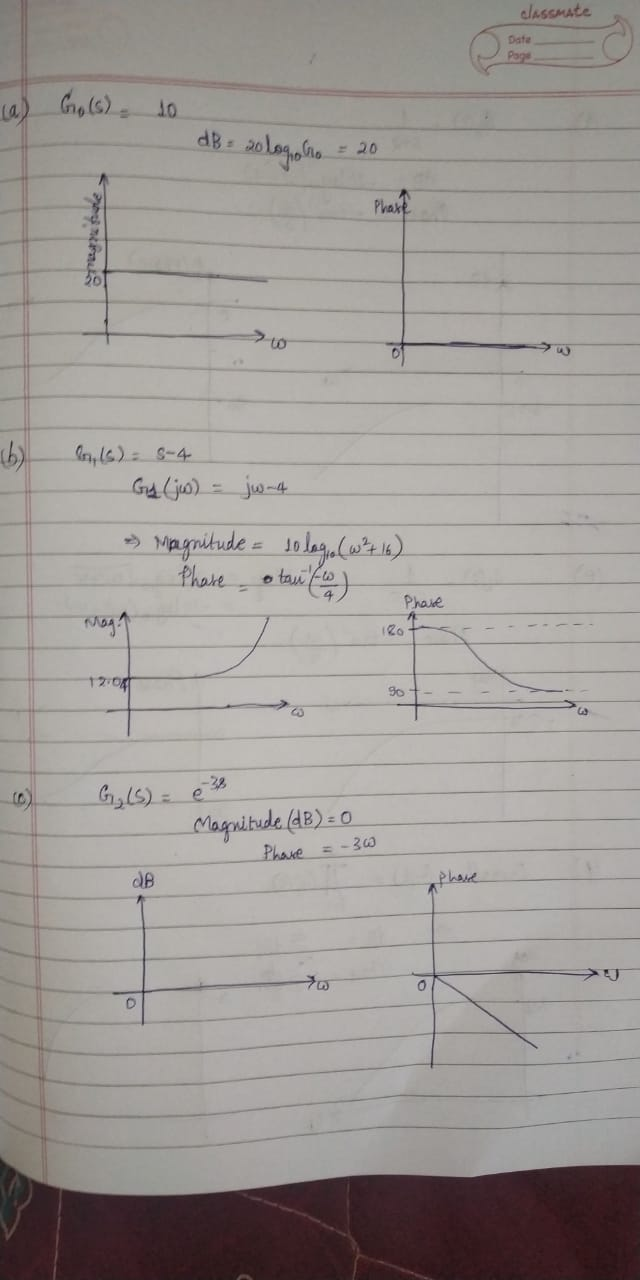 classmate
Date
Page
(a) G₀(s) = 10
dB = 20log₁₀G₀ = 20
20
ω
Phase
0
ω
(b) G₁(s) = s-4
G₁(jω) = jω-4
⇒ Magnitude = 10log₁₀(ω²+16)
Phase = tan⁻¹(-ω/4)
Mag.
12.04
ω
Phase
180
90
ω
(c) G₂(s) = e⁻³ˢ
Magnitude (dB) = 0
Phase = -3ω
dB
0
ω
Phase
0
ω